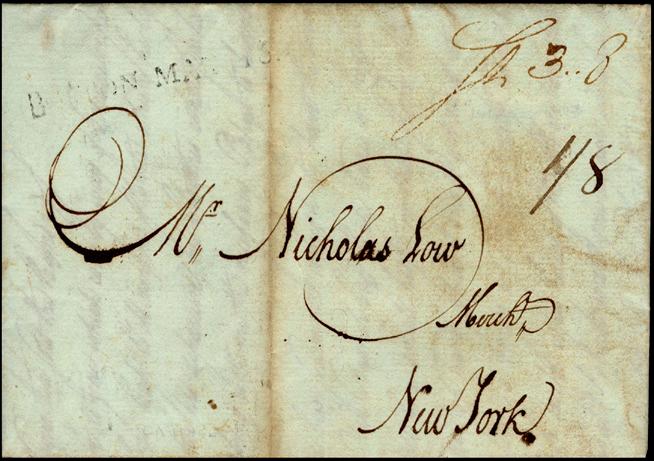 BOSTON MA
3..8
1/8
Mr. Nicholas Low
Mercht.
New York